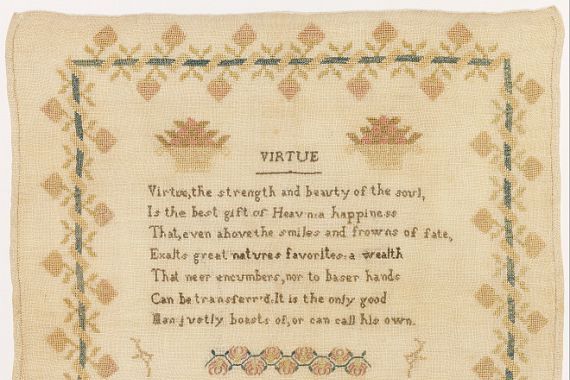 VIRTUE
Virtue,the strength and beauty of the soul,
Is the best gift of Heav'n:a happiness
That,even abovethe smiles and frowns of fate,
Exalts great natvres favorites:a wealth
That neer encumbers,nor to baser hands
Can be transferr'd.It is the only good
Man justly boasts of,or can call his own.